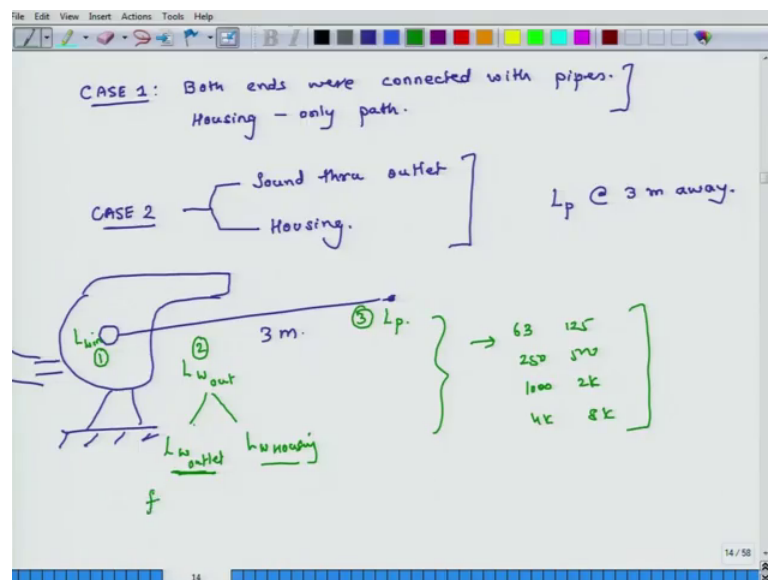 File Edit View Insert Actions Tools Help
CASE 1: Both ends were connected with pipes.
Housing - only path.
CASE 2
Sound thru outlet
Housing.
Lp @ 3 m away.
Lwin
①
②
Lw out
3 m.
③ Lp.
Lw outlet
Lw Housing
→ 63 125
250 500
1000 2K
4K 8K
f
14 / 58
14